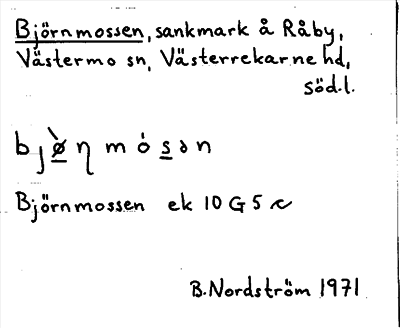 Björnmossen, sankmark å Råby,
Västermo sn, Västerrekarne hd,
söd.l.
bjø̀ꞃ mósən
Björnmossen ek 10 G 5 c
B. Nordström 1971